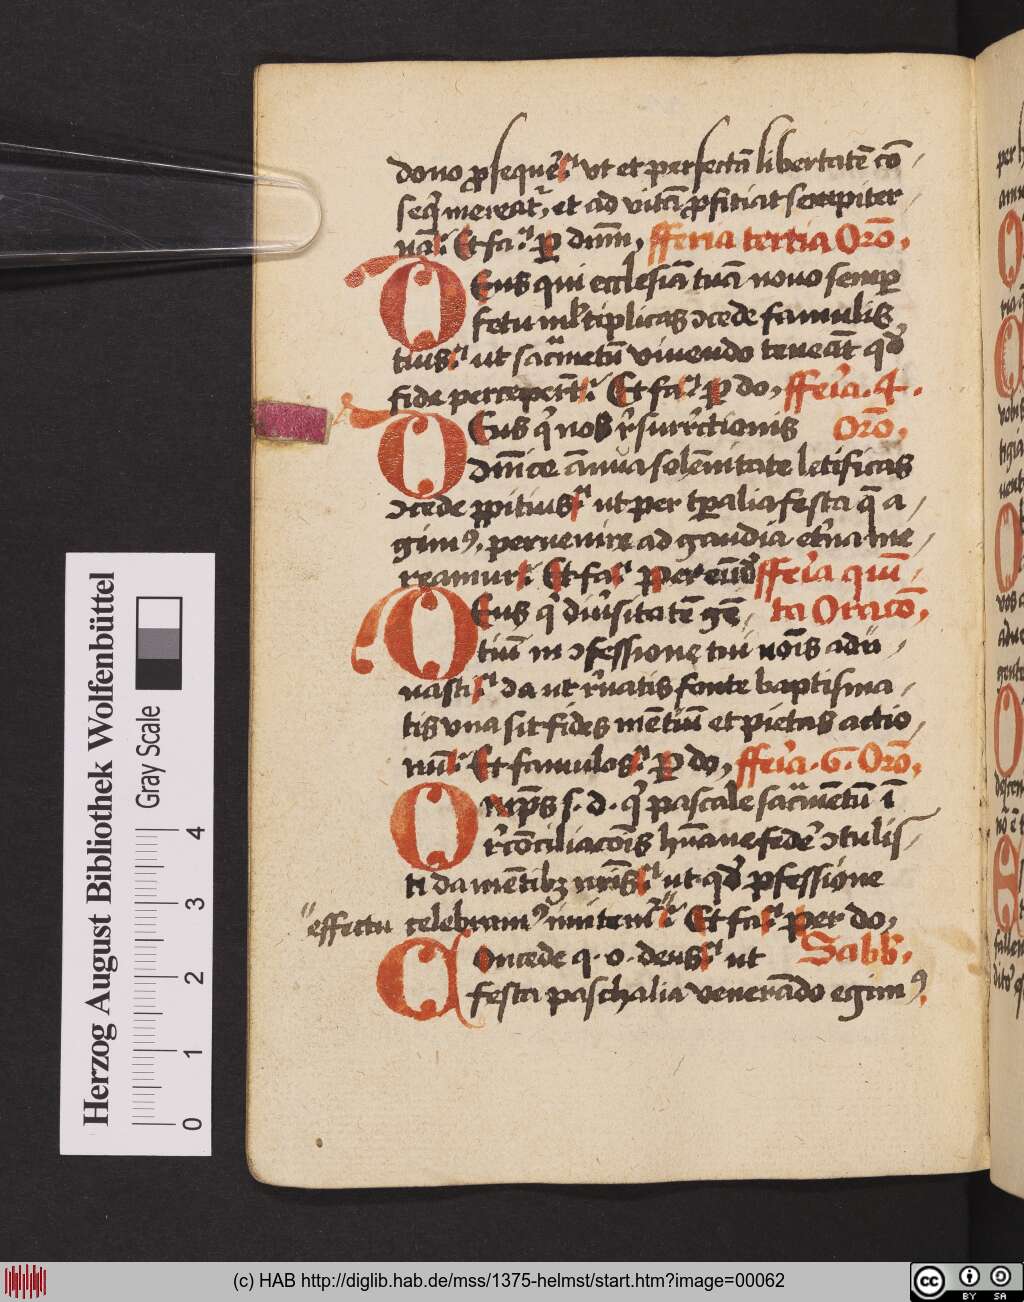 dono ꝓsequerꝭ ut et perfectā libertatē cō
seqͥ mereat᷑, et ad vitā ꝓfitiat sempiter
nā. Et fa. ꝑ dnm, fferia tertia Orō.
DEus qui ecclesiā tuā novo semꝑ
fetu ml̄tiplicas ↄcede famulis
tuis ut sac͛metū vivendo teneāt qd̛
fide perceperūt. Et fa. ꝑ do, ffeīa. 4.
DEus qͥ nos r̄surrc̄tionis Orō.
dn̄ice ānua solēnitate letificas
ↄcede ꝓpitius ut per tꝑalia festa q̄ a
gimꝰ. pervenire ad gaudia etn̄a me
reamur. Et fa. per eund̛ ffeīa quī
DEus qͥ div̄sitatē gē ta Oracō.
tiū in ↄfessione tui nōis adu
nasti da ut r̄natis fonte baptisma
tis una sit fides mētiū et pietas actio
nū. Et famulos. ꝑ do, ffeīa. 6. Orō.
Omp̄s s. d. qͥ pascale sac͛mentū ī
r̄cōciliacōis hūane federe ↄtulis
ti da mētibꝫ nr̄is ut qd̛ ꝓfessione
celebramꝰ imitemᷣ. Et fa. per do,
effectu
Concede q. o. deus ut Sabb.
festa paschalia venerādo egimꝰ.
Herzog August Bibliothek Wolfenbüttel
Gray Scale
0 1 2 3 4
(c) HAB http://diglib.hab.de/mss/1375-helmst/start.htm?image=00062
cc BY SA